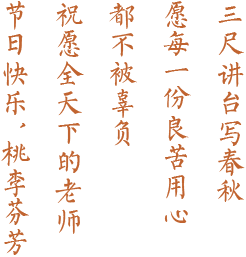 三尺讲台写春秋
愿每一份良苦用心
都不被辜负
祝愿全天下的老师
节日快乐，桃李芬芳